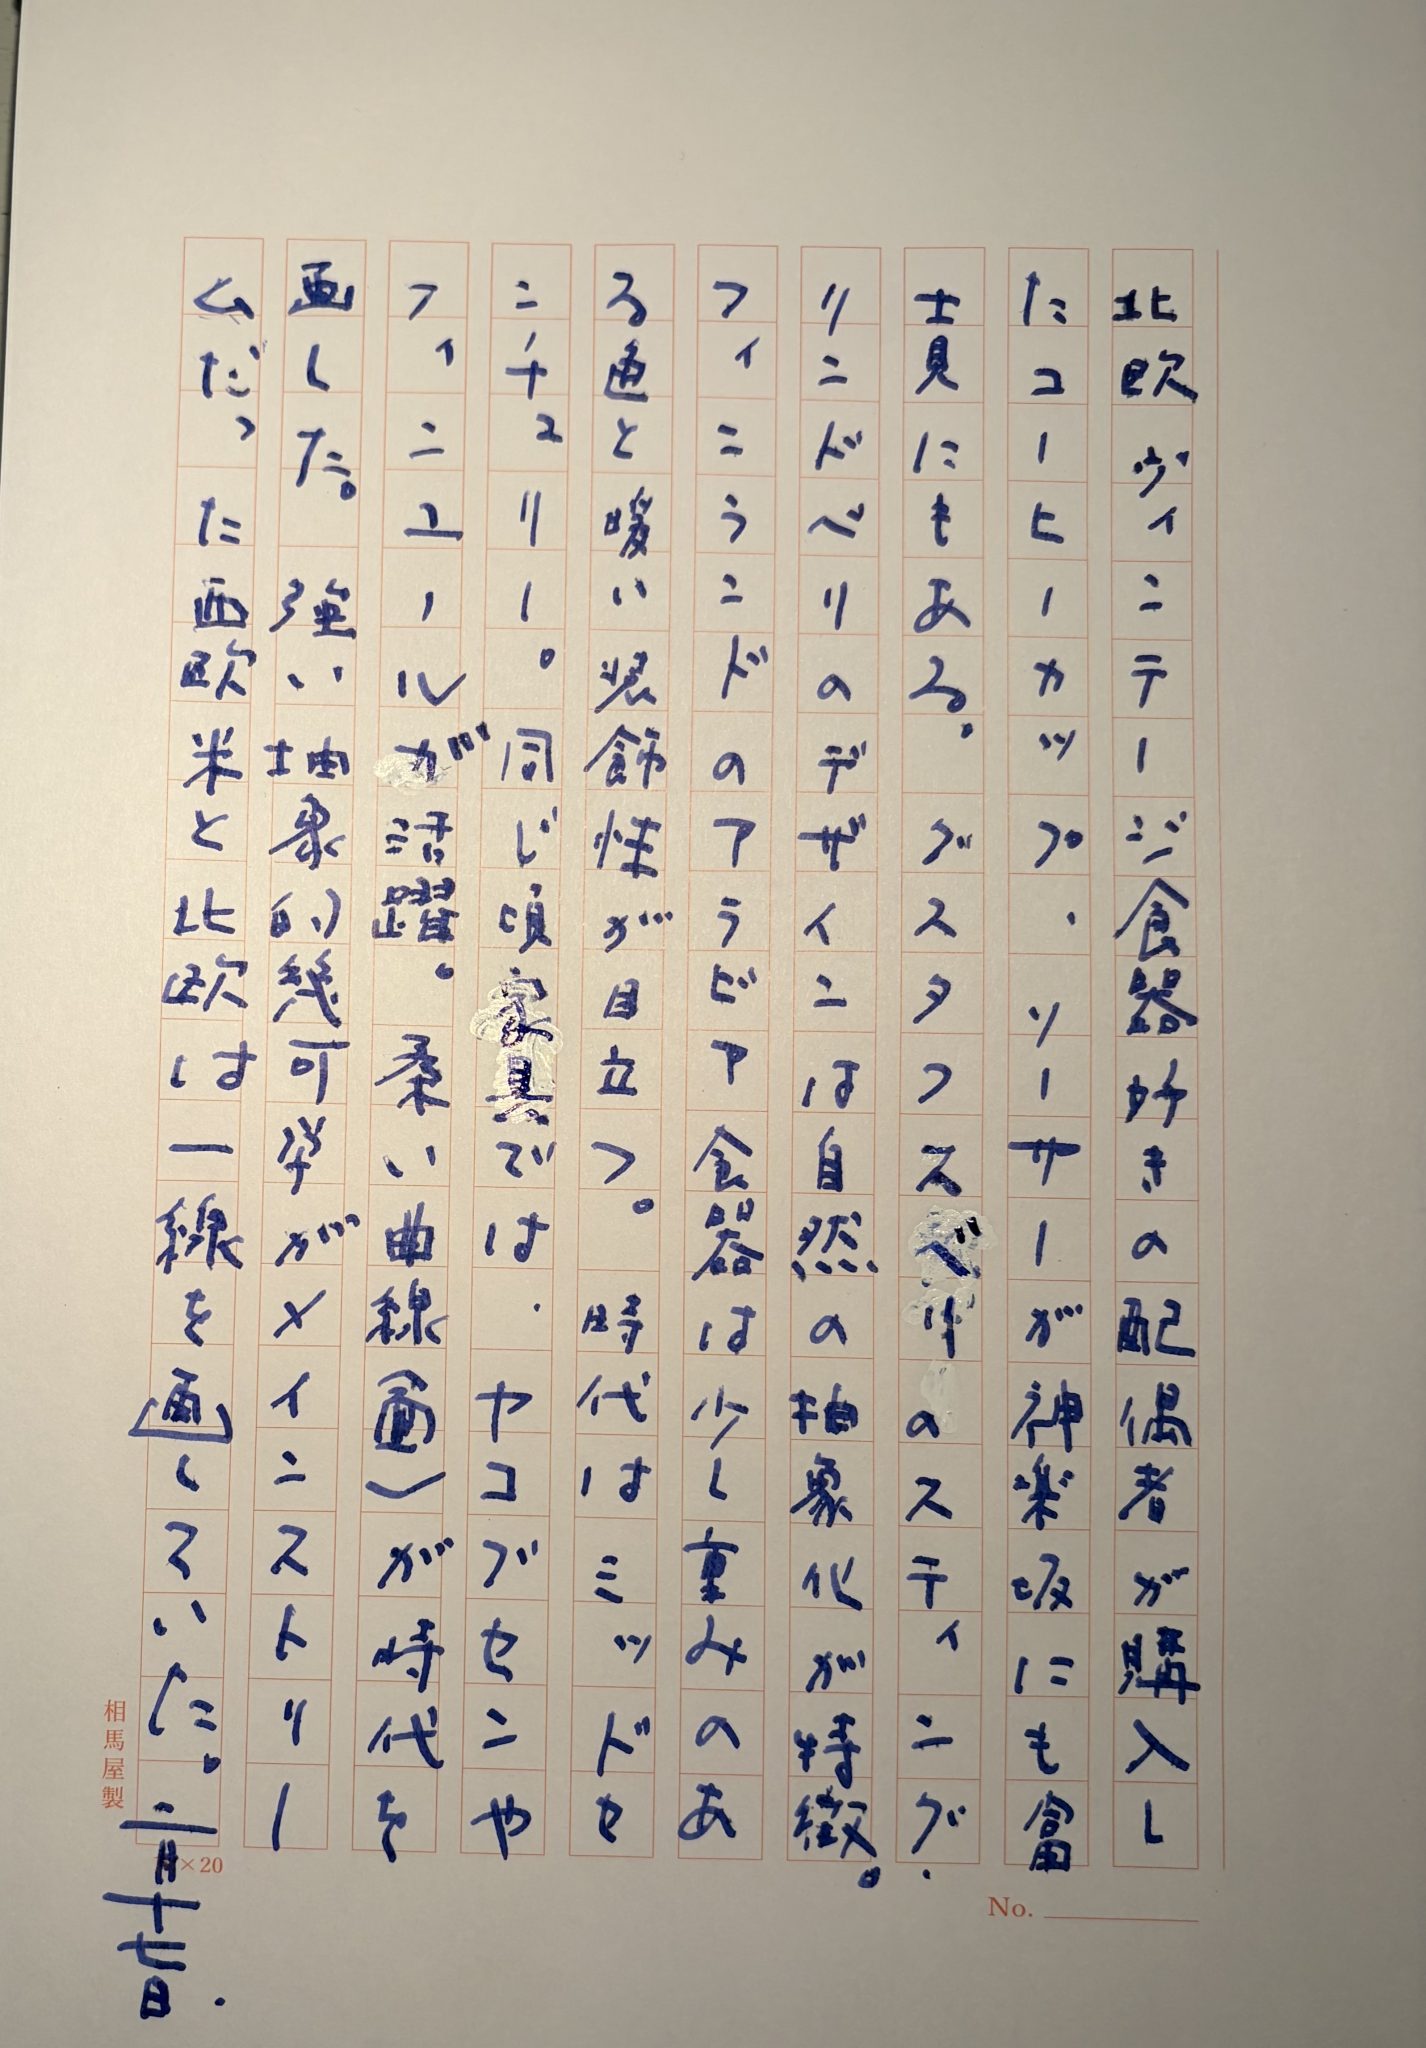 北欧ヴィンテージ食器好きの配偶者が購入し
たコーヒーカップ、ソーサーが神楽坂にも富
士見にもある。グスタフスベリのスティング・
リンドベリのデザインは自然の抽象化が特徴。
フィンランドのアラビア食器は少し重みのあ
る色と暖い装飾性が目立つ。時代はミッドセ
ンチュリー。同じ頃家具では、ヤコブセンや
フィンユールが活躍。柔い曲線(面)が時代を
画した。強い抽象的幾可学がメインストリー
ムだった西欧米と北欧は一線を画していた。
二月十七日.
相馬屋製
×20
No.